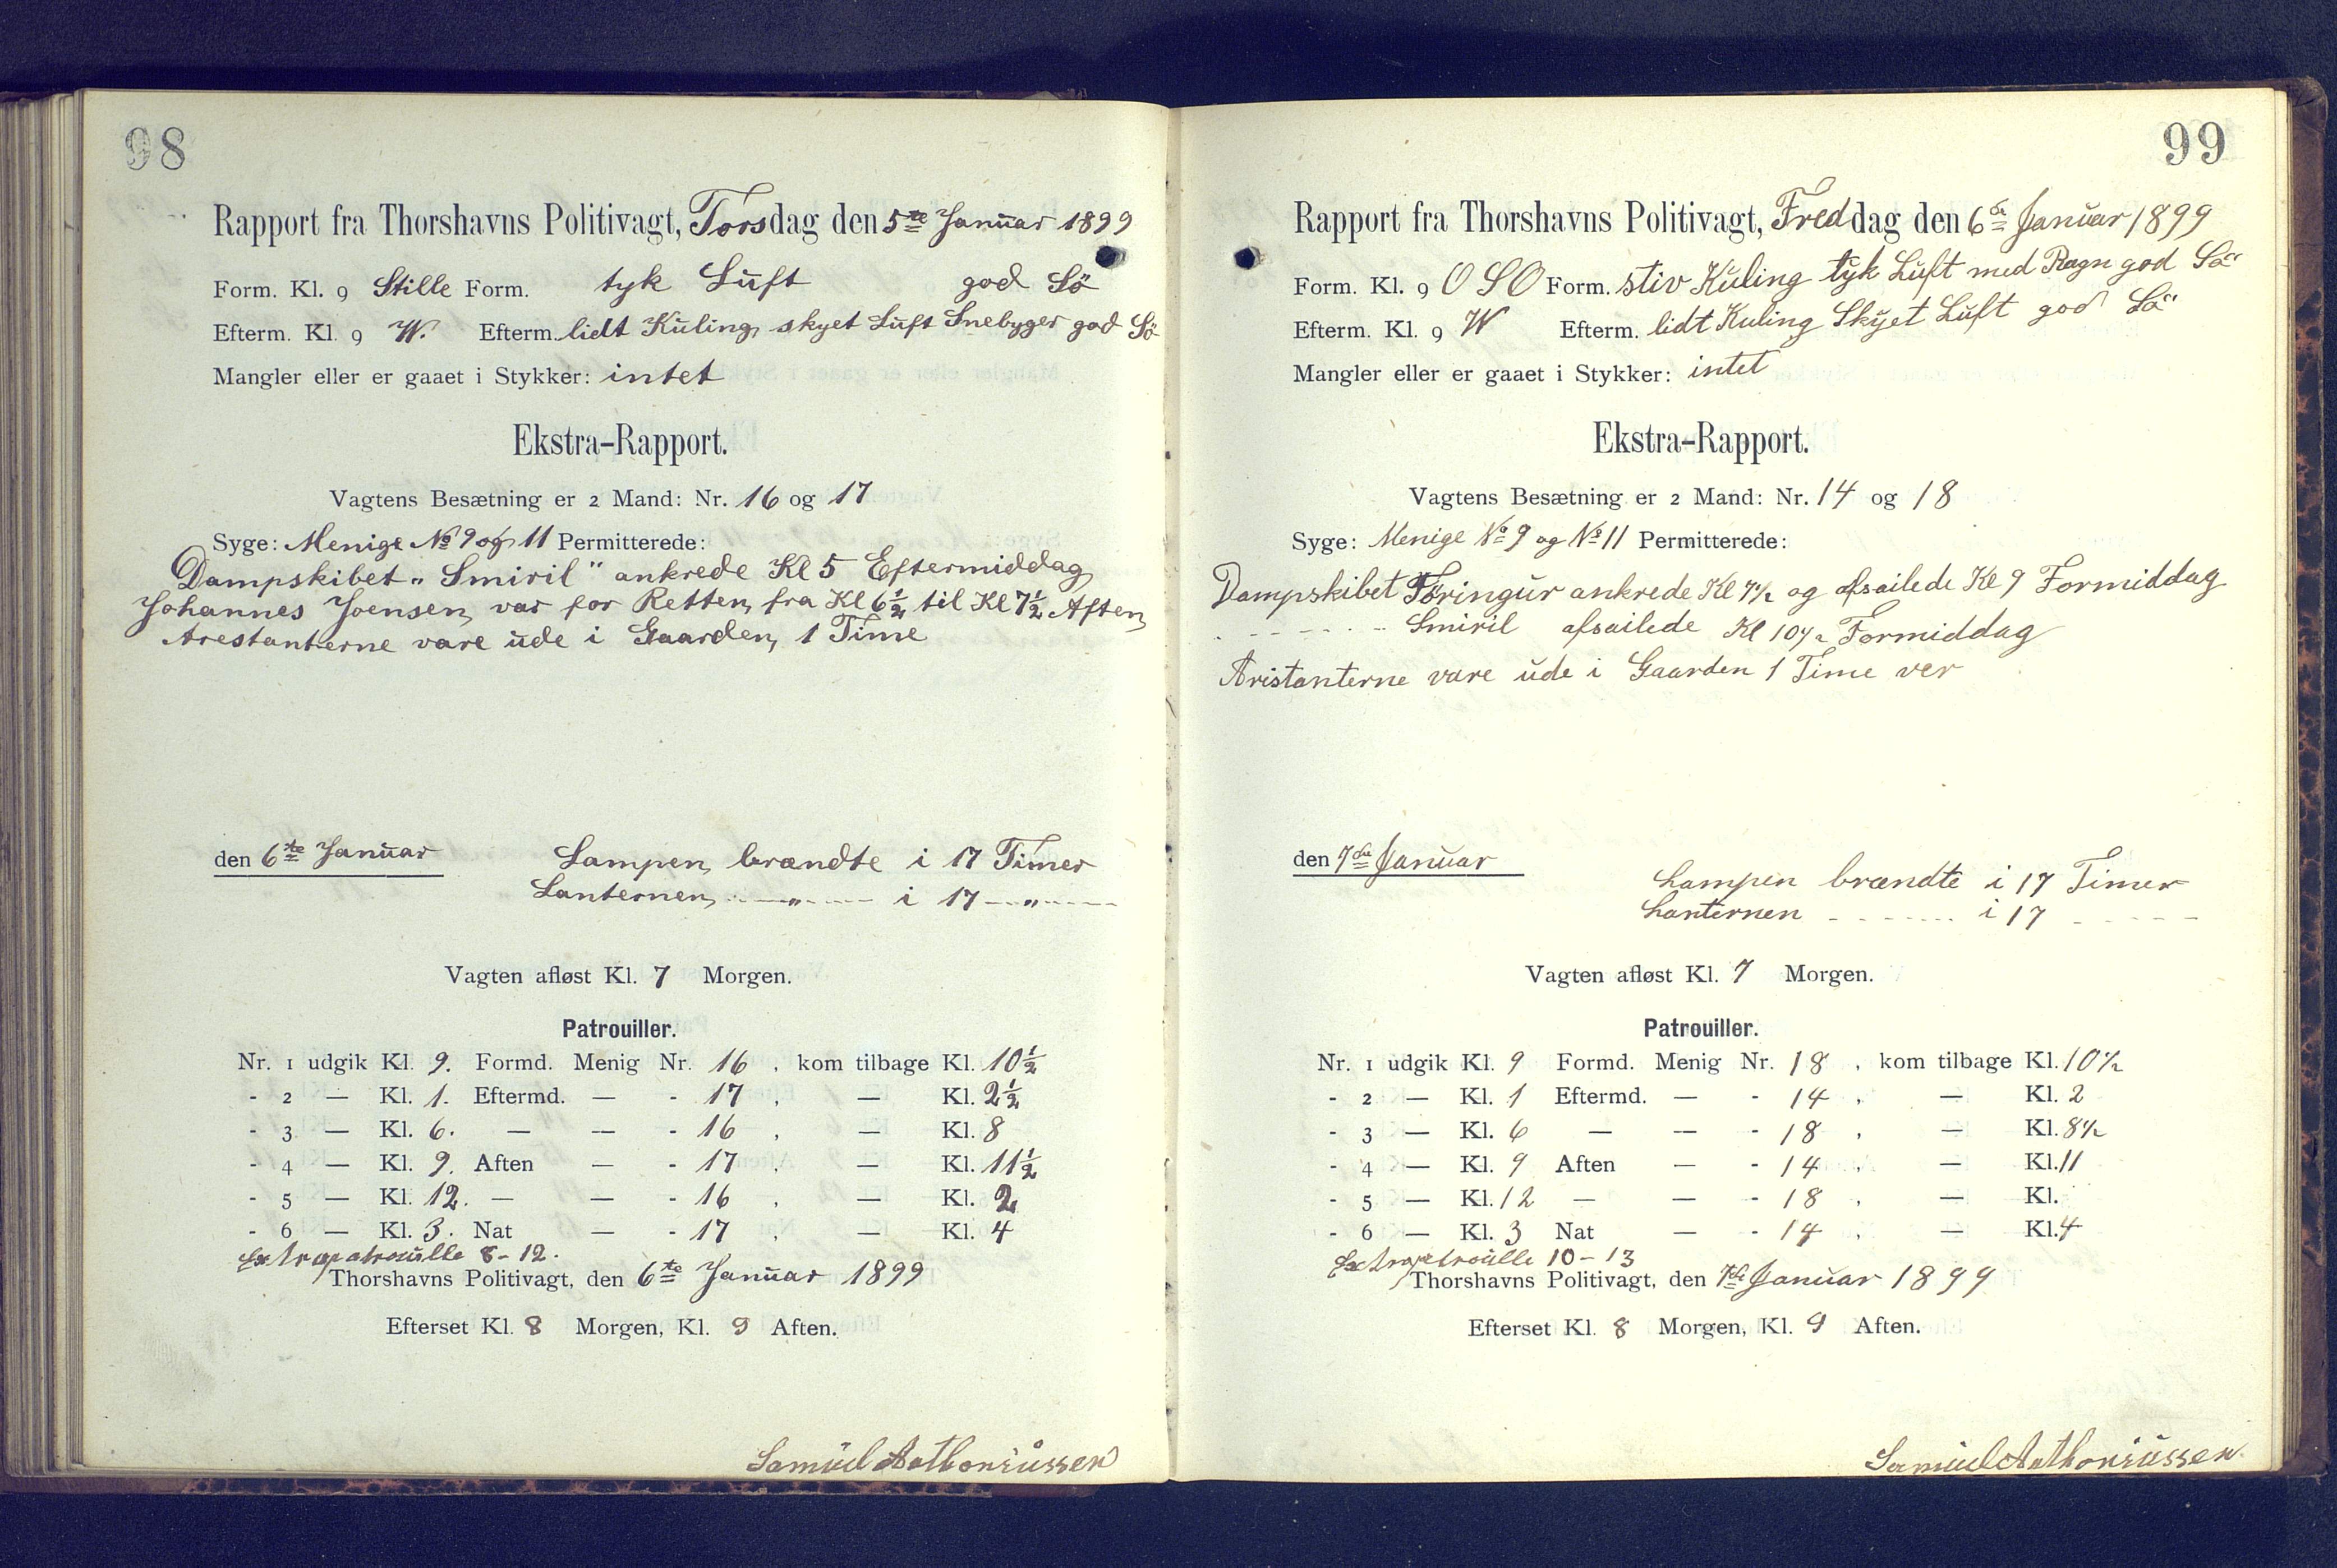 98
Rapport fra Thorshavns Politivagt, Torsdag den 5te Januar 1899
Form. Kl. 9 Stille Form. tyk Luft god Sö
Efterm. Kl. 9 W. Efterm. lidt Kuling, skyet Luft Snebyger god Sö
Mangler eller er gaaet i Stykker: intet
Ekstra-Rapport.
Vagtens Besætning er 2 Mand: Nr. 16 og 17
Syge: Menige No 9 og 11 Permitterede:
Dampskibet „Smiril" ankrede Kl 5 Eftermiddag
Johannes Joensen var for Retten fra Kl 6½ til Kl 7½ Aften
Arestanterne vare ude i Gaarden 1 Time
den 6te Januar Lampen brændte i 17 Timer
Lanternen —„— i 17 —„—
Vagten afløst Kl. 7 Morgen.
Patrouiller.
Nr. 1 udgik Kl. 9. Formd. Menig Nr. 16, kom tilbage Kl. 10½
- 2 — Kl. 1. Eftermd. — - 17, — Kl. 2½
- 3 — Kl. 6. — — - 16, — Kl. 8
- 4 — Kl. 9. Aften — - 17, — Kl. 11½
- 5 — Kl. 12. — — - 16, — Kl. 2
- 6 — Kl. 3. Nat — - 17, — Kl. 4
Extrapatrouille 8-12.
Thorshavns Politivagt, den 6te Januar 1899
Efterset Kl. 8 Morgen, Kl. 9 Aften.
Samuel Anthoniussen
99
Rapport fra Thorshavns Politivagt, Freddag den 6de Januar 1899
Form. Kl. 9 OSO Form. stiv Kuling tyk Luft med Ragn god Sö
Efterm. Kl. 9 W Efterm. lidt Kuling Skyet Luft god Sö
Mangler eller er gaaet i Stykker: intet
Ekstra-Rapport.
Vagtens Besætning er 2 Mand: Nr. 14 og 18
Syge: Menige No 9 og No 11 Permitterede:
Dampskibet Föringur ankrede Kl 7½ og afsailede Kl 9 Formiddag
- - - - - - Smiril afsailede Kl 10½ Formiddag
Aristanterne vare ude i Gaarden 1 Time ver
den 7de Januar
Lampen brændte i 17 Timer
Lanternen - - - - - - i 17 - - - - -
Vagten afløst Kl. 7 Morgen.
Patrouiller.
Nr. 1 udgik Kl. 9 Formd. Menig Nr. 18, kom tilbage Kl. 10½
- 2 — Kl. 1 Eftermd. — - 14, — Kl. 2
- 3 — Kl. 6 — — - 18, — Kl. 8½
- 4 — Kl. 9 Aften — - 14, — Kl. 11
- 5 — Kl. 12 — — - 18, — Kl.
- 6 — Kl. 3 Nat — - 14, — Kl. 4
Extrapatroulle 10-13
Thorshavns Politivagt, den 7de Januar 1899
Efterset Kl. 8 Morgen, Kl. 9 Aften.
Samuel Anthoniussen